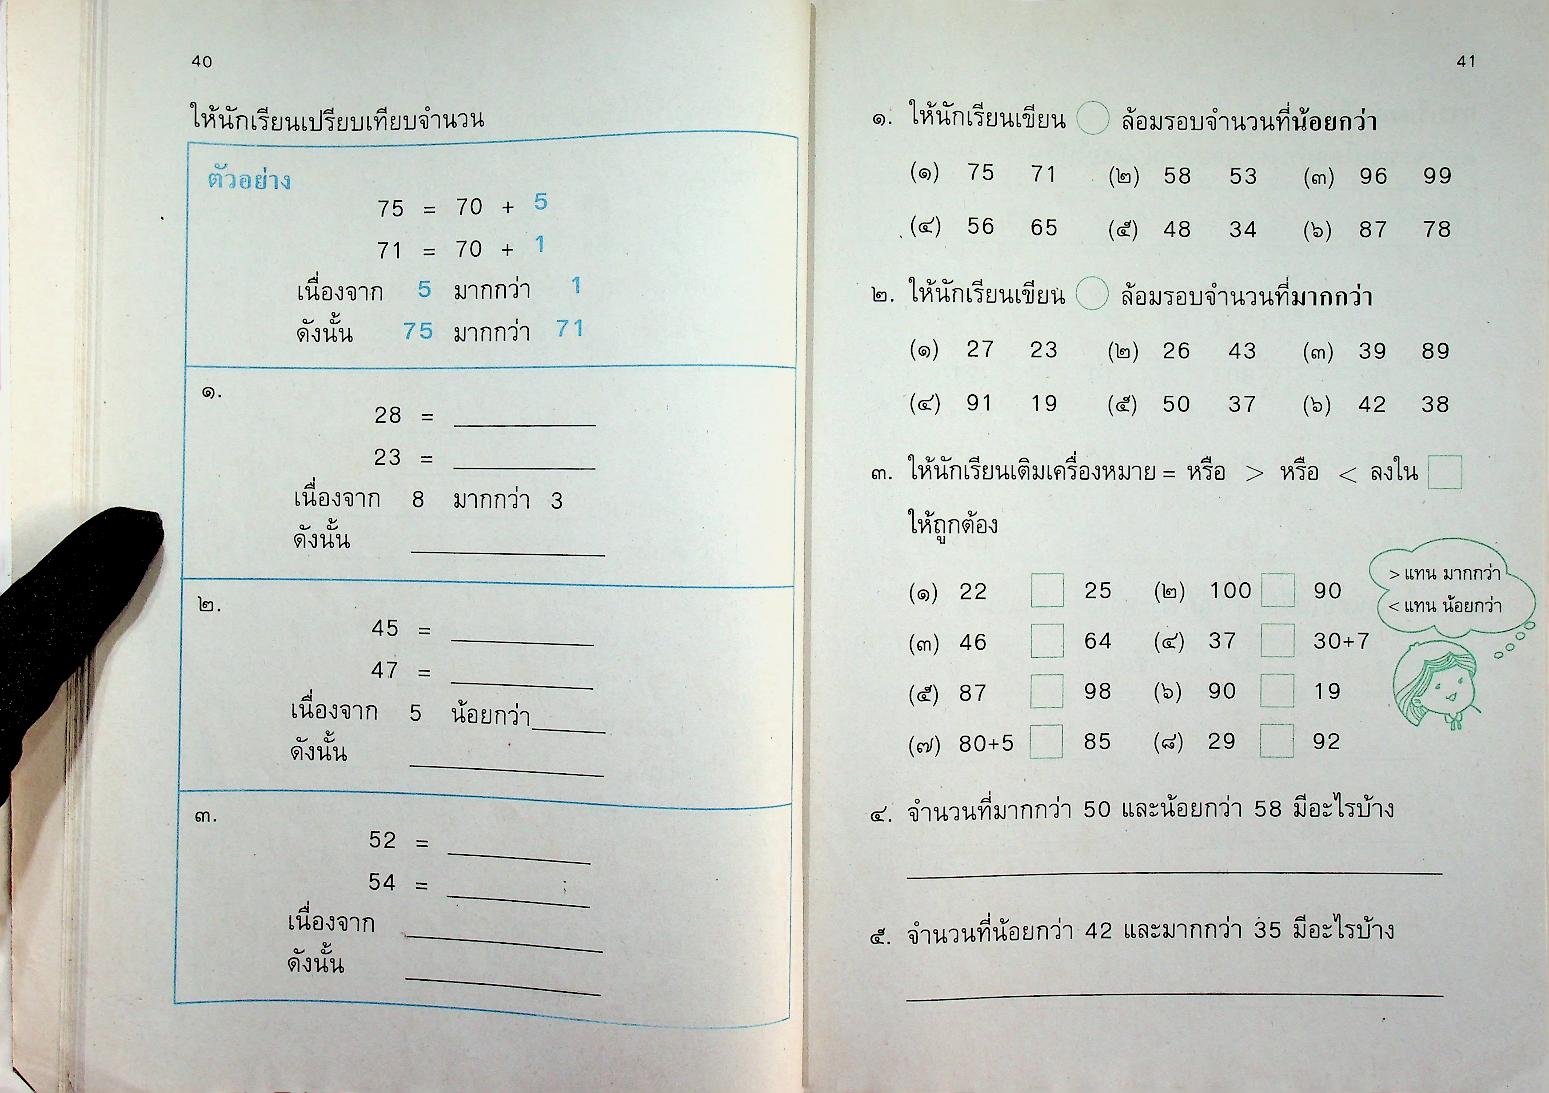 40
ให้นักเรียนเปรียบเทียบจำนวน
ตัวอย่าง
75 = 70 + 5
71 = 70 + 1
เนื่องจาก 5 มากกว่า 1
ดังนั้น 75 มากกว่า 71
๑.
28 =
23 =
เนื่องจาก 8 มากกว่า 3
ดังนั้น
๒.
45 =
47 =
เนื่องจาก 5 น้อยกว่า
ดังนั้น
๓.
52 =
54 =
เนื่องจาก
ดังนั้น
41
๑. ให้นักเรียนเขียน ล้อมรอบจำนวนที่น้อยกว่า
(๑) 75 71 (๒) 58 53 (๓) 96 99
(๔) 56 65 (๕) 48 34 (๖) 87 78
๒. ให้นักเรียนเขียน ล้อมรอบจำนวนที่มากกว่า
(๑) 27 23 (๒) 26 43 (๓) 39 89
(๔) 91 19 (๕) 50 37 (๖) 42 38
๓. ให้นักเรียนเติมเครื่องหมาย = หรือ > หรือ < ลงใน
ให้ถูกต้อง
> แทน มากกว่า
< แทน น้อยกว่า
(๑) 22 25 (๒) 100 90
(๓) 46 64 (๔) 37 30+7
(๕) 87 98 (๖) 90 19
(๗) 80+5 85 (๘) 29 92
๔. จำนวนที่มากกว่า 50 และน้อยกว่า 58 มีอะไรบ้าง
๕. จำนวนที่น้อยกว่า 42 และมากกว่า 35 มีอะไรบ้าง